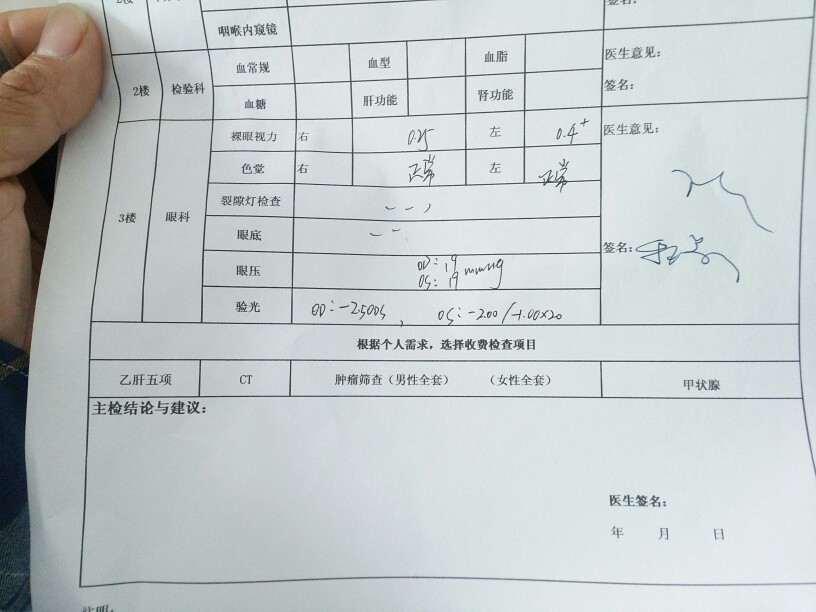 2楼
签名：
咽喉内窥镜
2楼 检验科 血常规 血型 血脂 医生意见：
血糖 肝功能 肾功能 签名：
3楼 眼科 裸眼视力 右 0.25 左 0.4+ 医生意见：
色觉 右 正常 左 正常
裂隙灯检查
眼底
签名：
眼压 OD：19 mmHg
OS：19
验光 OD：-2.50DS， OS：-2.00/-1.00×20
根据个人需求，选择收费检查项目
乙肝五项 CT 肿瘤筛查（男性全套） （女性全套） 甲状腺
主检结论与建议：
医生签名：
年 月 日